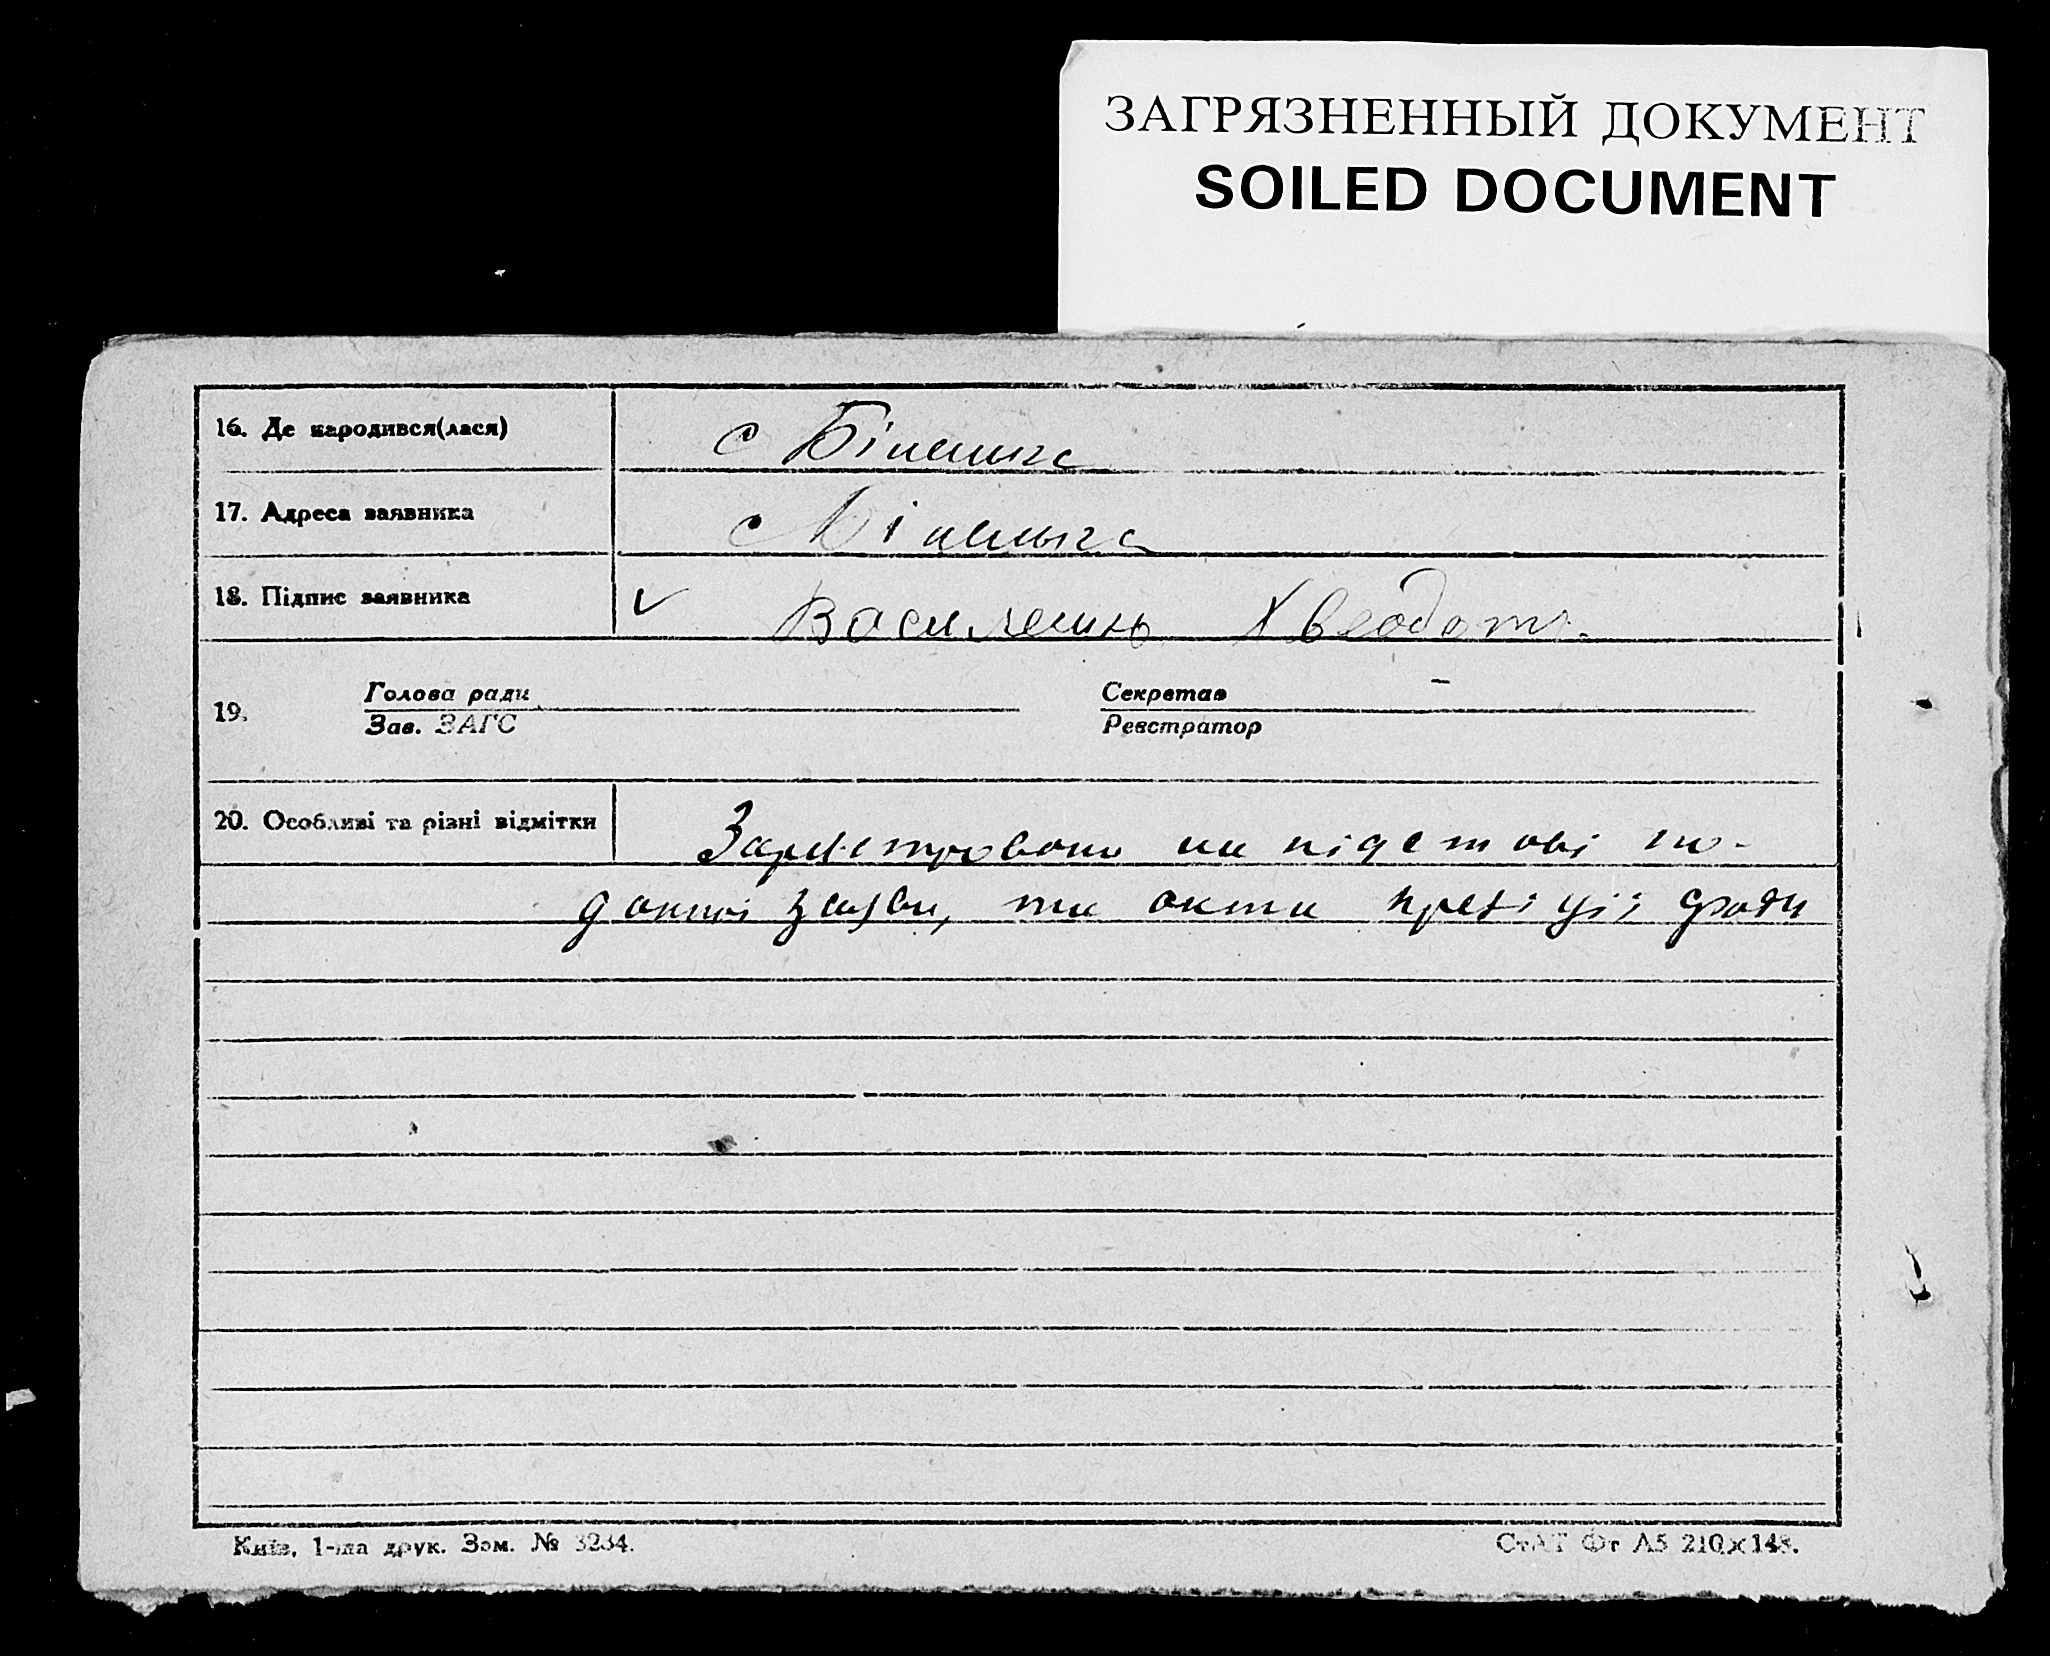 ЗАГРЯЗНЕННЫЙ ДОКУМЕНТ
SOILED DOCUMENT
16. Де народився(лася)
с
17. Адреса заявника
с
18. Підпис заявника
✓ Василенко Хведот
19. Голова ради Секретар
Зав. ЗАГС Реєстратор
20. Особливі та різні відмітки
Зареєстровано на підставі по-
данної заяви, та акта
Київ, 1-ша друк. Зам. № 3234.
СтАТ Фт А5 210×148.